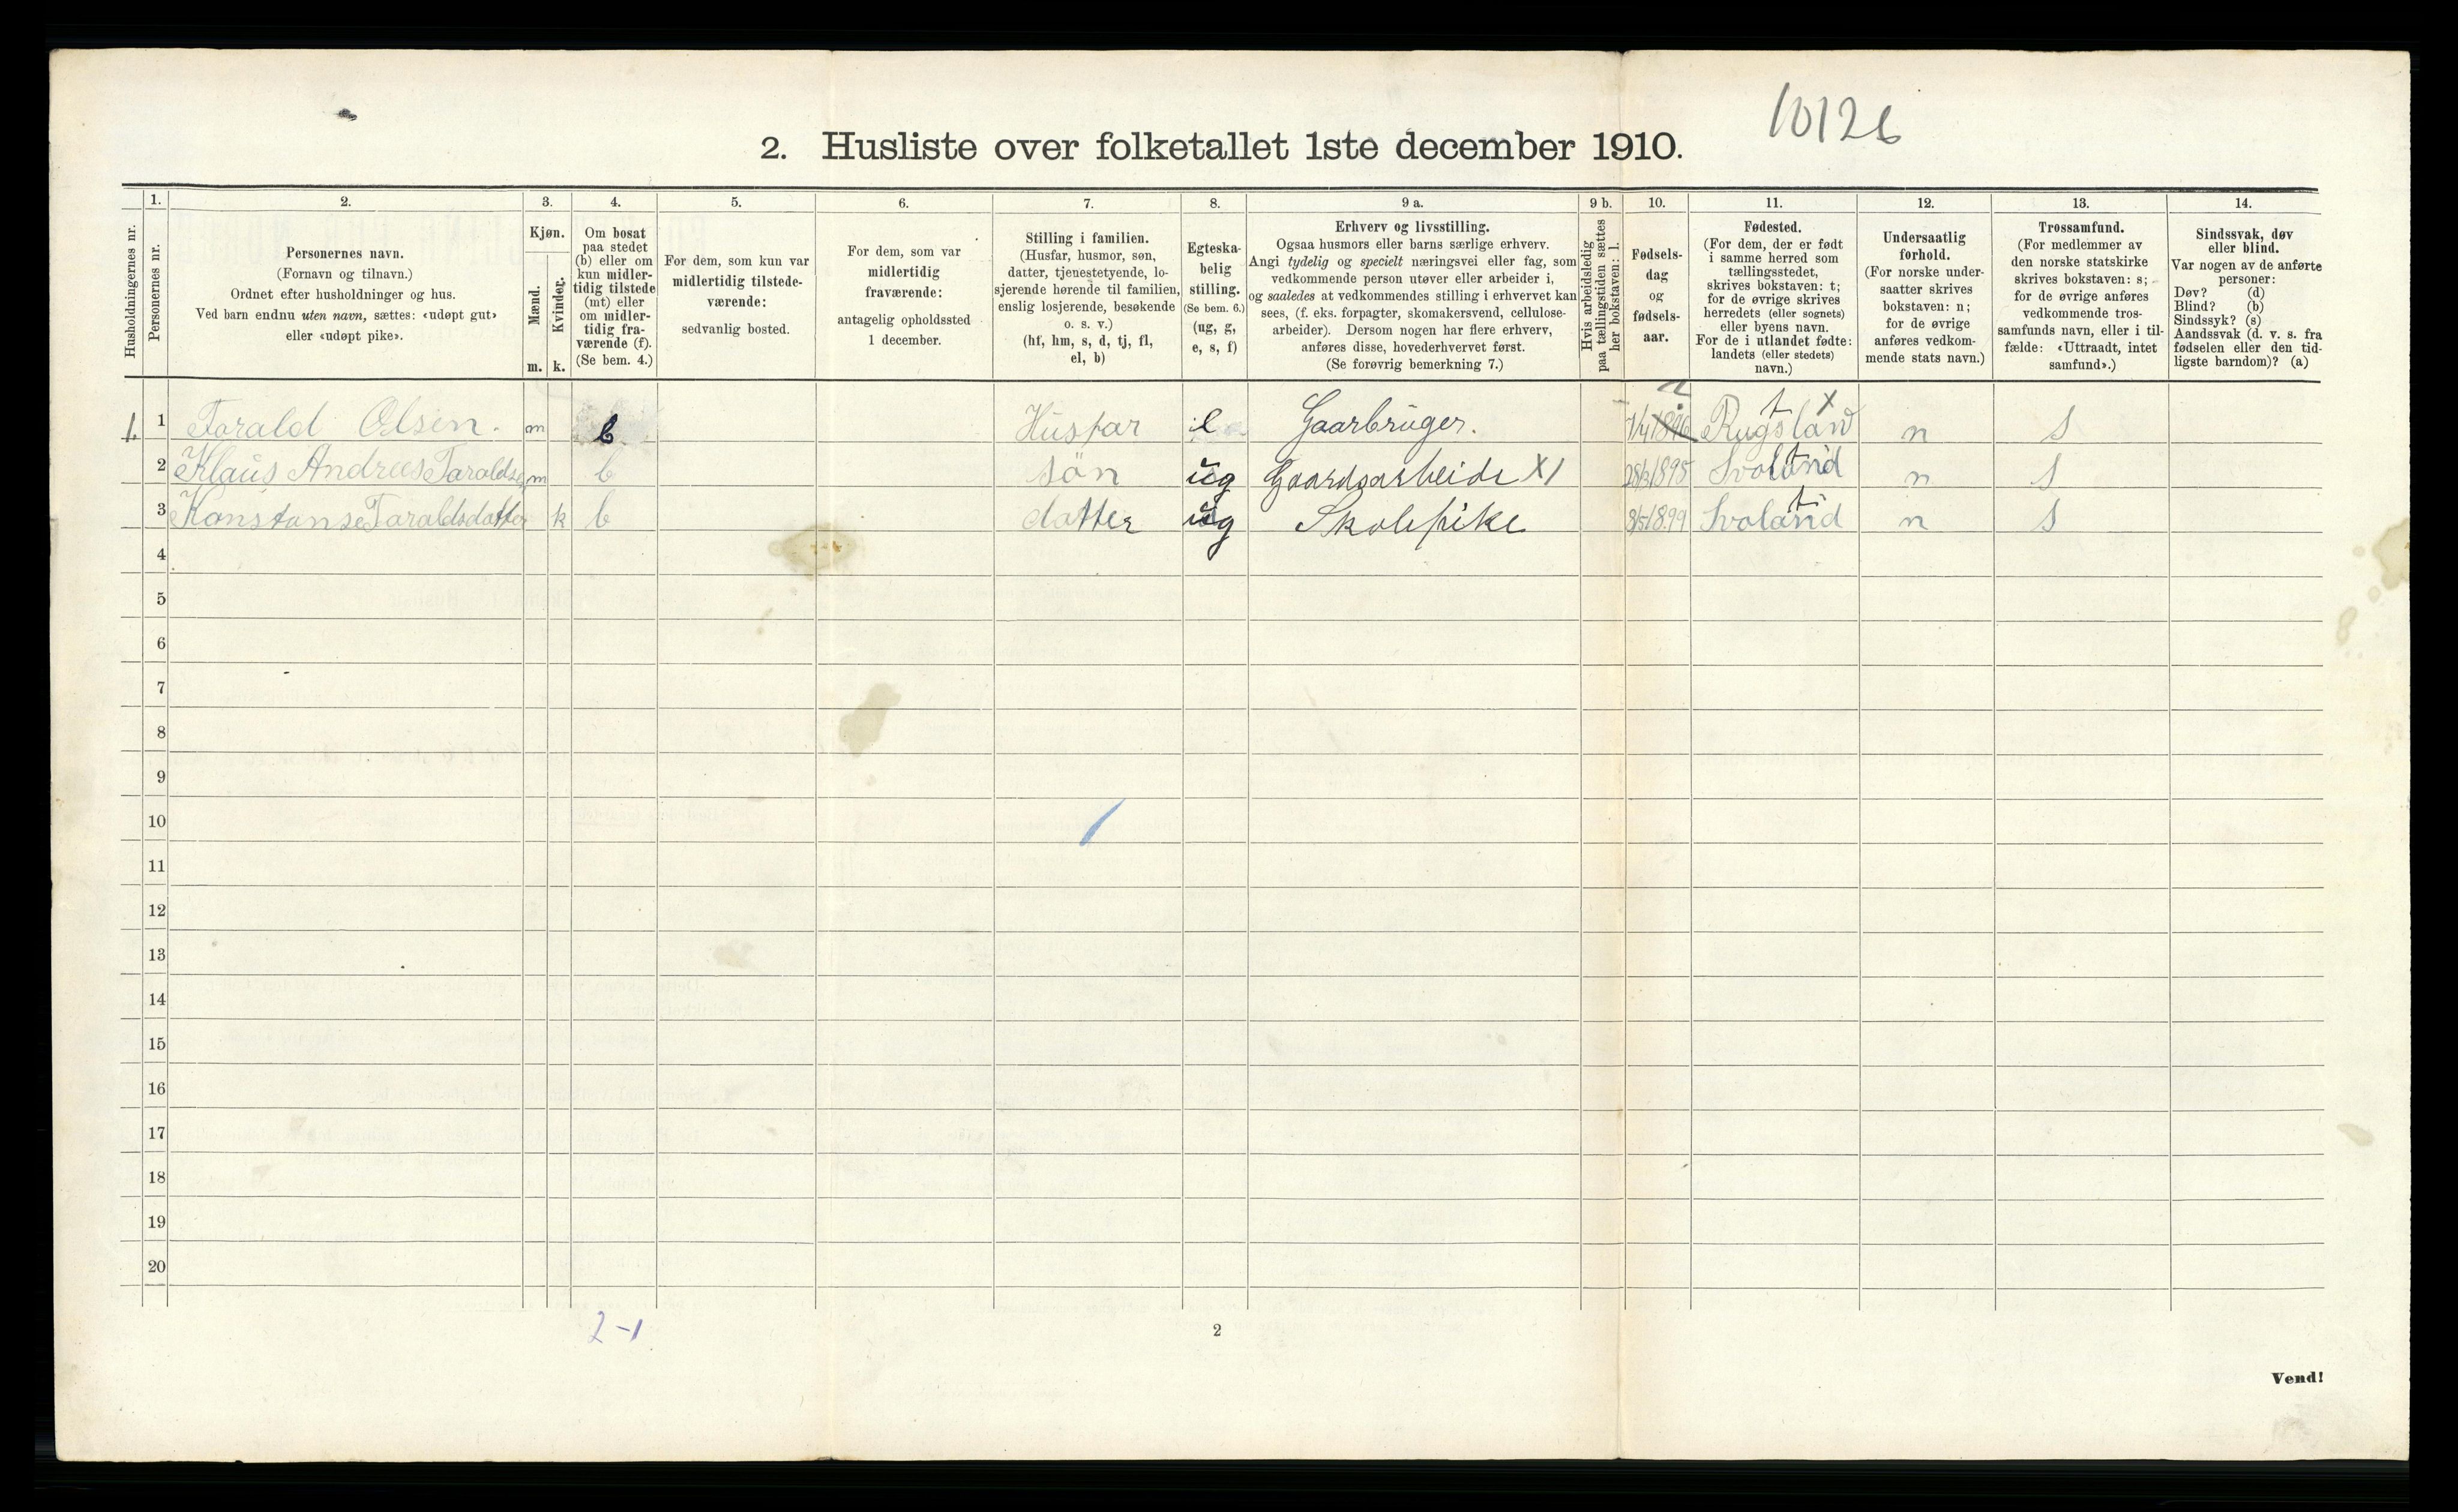 10126
2. Husliste over folketallet 1ste december 1910.
Husholdningernes nr.
1. Personernes nr.
2. Personernes navn.
(Fornavn og tilnavn.)
Ordnet efter husholdninger og hus.
Ved barn endnu uten navn, sættes: «udøpt gut»
eller «udøpt pike».
3. Kjøn.
Mænd. m.
Kvinder. k.
4. Om bosat
paa stedet
(b) eller om
kun midler-
tidig tilstede
(mt) eller
om midler-
tidig fra-
værende (f).
(Se bem. 4.)
5. For dem, som kun var
midlertidig tilstede-
værende:
sedvanlig bosted.
6. For dem, som var
midlertidig
fraværende:
antagelig opholdssted
1 december.
7. Stilling i familien.
(Husfar, husmor, søn,
datter, tjenestetyende, lo-
sjerende hørende til familien,
enslig losjerende, besøkende
o. s. v.)
(hf, hm, s, d, tj, fl,
el, b)
8. Egteska-
belig
stilling.
(Se bem. 6.)
(ug, g,
e, s, f)
9 a. Erhverv og livsstilling.
Ogsaa husmors eller barns særlige erhverv.
Angi tydelig og specielt næringsvei eller fag, som
vedkommende person utøver eller arbeider i,
og saaledes at vedkommendes stilling i erhvervet kan
sees, (f. eks. forpagter, skomakersvend, cellulose-
arbeider). Dersom nogen har flere erhverv,
anføres disse, hovederhvervet først.
(Se forøvrig bemerkning 7.)
9 b. Hvis arbeidsledig
paa tællingstiden sættes
her bokstaven: l.
10. Fødsels-
dag
og
fødsels-
aar.
11. Fødested.
(For dem, der er født
i samme herred som
tællingsstedet,
skrives bokstaven: t;
for de øvrige skrives
herredets (eller sognets)
eller byens navn.
For de i utlandet fødte:
landets (eller stedets)
navn.)
12. Undersaatlig
forhold.
(For norske under-
saatter skrives
bokstaven: n;
for de øvrige
anføres vedkom-
mende stats navn.)
13. Trossamfund.
(For medlemmer av
den norske statskirke
skrives bokstaven: s;
for de øvrige anføres
vedkommende tros-
samfunds navn, eller i til-
fælde: «Uttraadt, intet
samfund».)
14. Sindssvak, døv
eller blind.
Var nogen av de anførte
personer:
Døv? (d)
Blind? (b)
Sindssyk? (s)
Aandssvak (d. v. s. fra
fødselen eller den tid-
ligste barndom)? (a)
1. 1 Tarald Olsen. m b Husfar e Gaarbruger. Rugsland t x n s
2 Klaus Andreas Taraldsen m b sön ug Gaardsarbeide X1 1895 Svoland t n s
3 Konstanse Taraldsdatter k b datter ug Skolepike 1899 Svoland t n s
4
5
6
7
8
9
10
11
12
13
14
15
16
17
18
19
20
2-1
2
Vend!